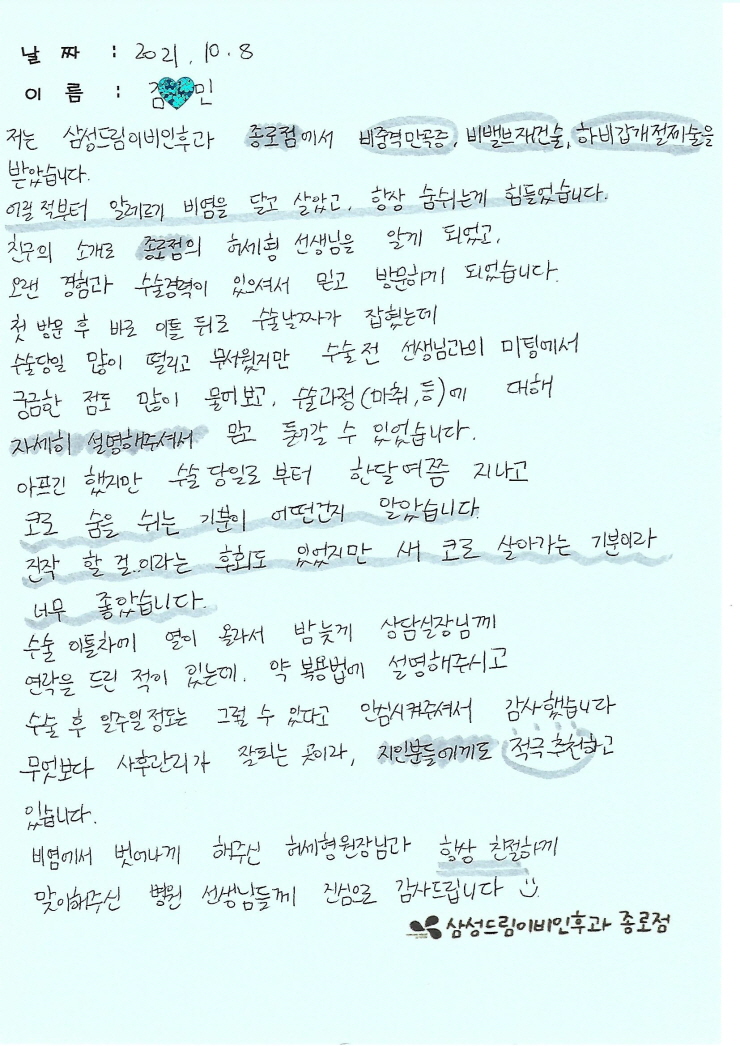 날 짜 : 2021. 10. 8
이 름 : 김 민
저는 삼성드림이비인후과 종로점에서 비중격만곡증, 비밸브재건술, 하비갑개절제술을
받았습니다.
어릴 적부터 알레르기 비염을 달고 살았고, 항상 숨쉬는게 힘들었습니다.
친구의 소개로 종로점의 허세형 선생님을 알게 되었고,
오랜 경험과 수술경력이 있으셔서 믿고 방문하게 되었습니다.
첫 방문 후 바로 이틀 뒤로 수술날짜가 잡혔는데
수술당일 많이 떨리고 무서웠지만 수술전 선생님과의 미팅에서
궁금한 점도 많이 물어보고, 수술과정(마취,등)에 대해
자세히 설명해주셔서 믿고 들어갈 수 있었습니다.
아프긴 했지만 수술 당일로 부터 한달여쯤 지나고
코로 숨을 쉬는 기분이 어떤건지 알았습니다.
진작 할 걸..이라는 후회도 있었지만 새 코로 살아가는 기분이라
너무 좋았습니다.
수술 이틀차에 열이 올라서 밤늦게 상담실장님께
연락을 드린 적이 있는데. 약 복용법에 설명해주시고
수술 후 일주일정도는 그럴 수 있다고 안심시켜주셔서 감사했습니다
무엇보다 사후관리가 잘되는 곳이라, 지인분들에게도 적극 추천하고
있습니다.
비염에서 벗어나게 해주신 허세형원장님과 항상 친절하게
맞이해주신 병원 선생님들께 진심으로 감사드립니다
삼성드림이비인후과 종로점